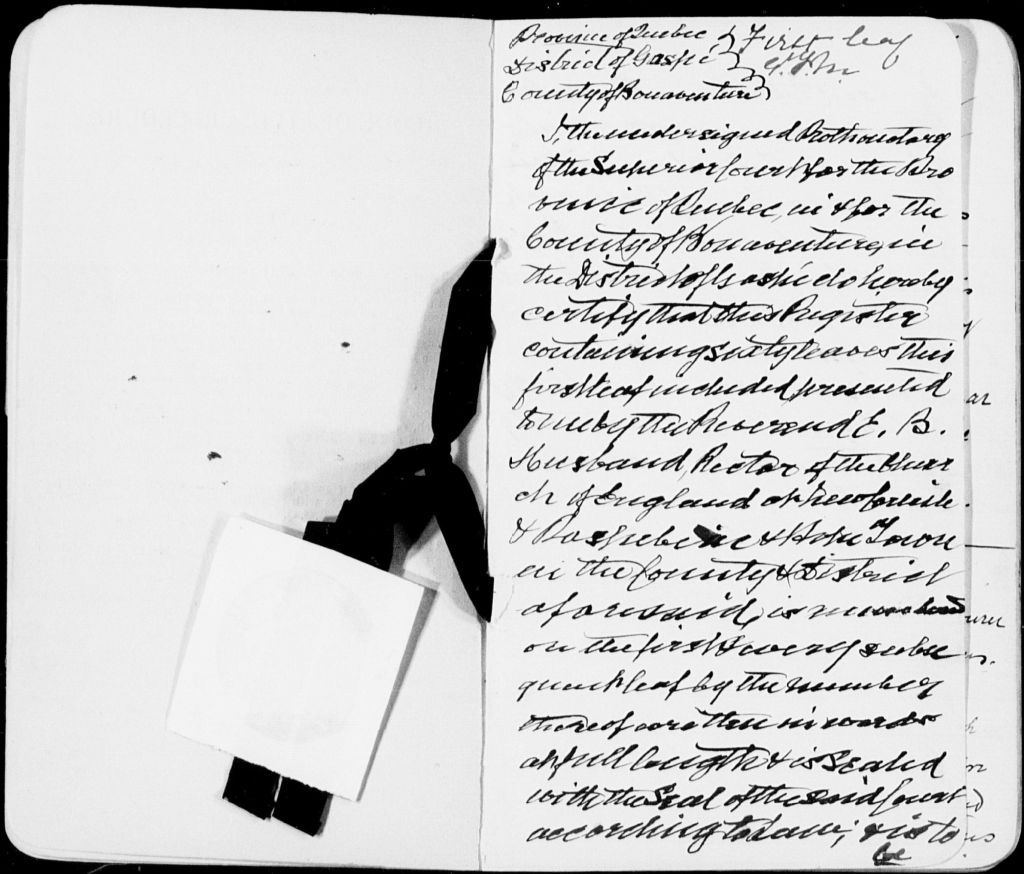 Province of Quebec } First leaf
District of Gaspé }
County of Bonaventure }
I, the undersigned Prothonotary
of the Superior Court for the Pro
vince of Quebec, in & for the
County of Bonaventure, in
the District of Gaspé do hereby
certify that this Register
containing sixty leaves this
first leaf included, presented
to me by the Reverend E. B.
Husband, Rector of the Chur
ch of England at New Carlisle
& Paspebiac & Hope Town
in the County & District
aforesaid, is numbered
on the first & every subse
quent leaf by the number
thereof written in words
at full length & is Sealed
with the Seal of the said Court
according to Law; & is to
be